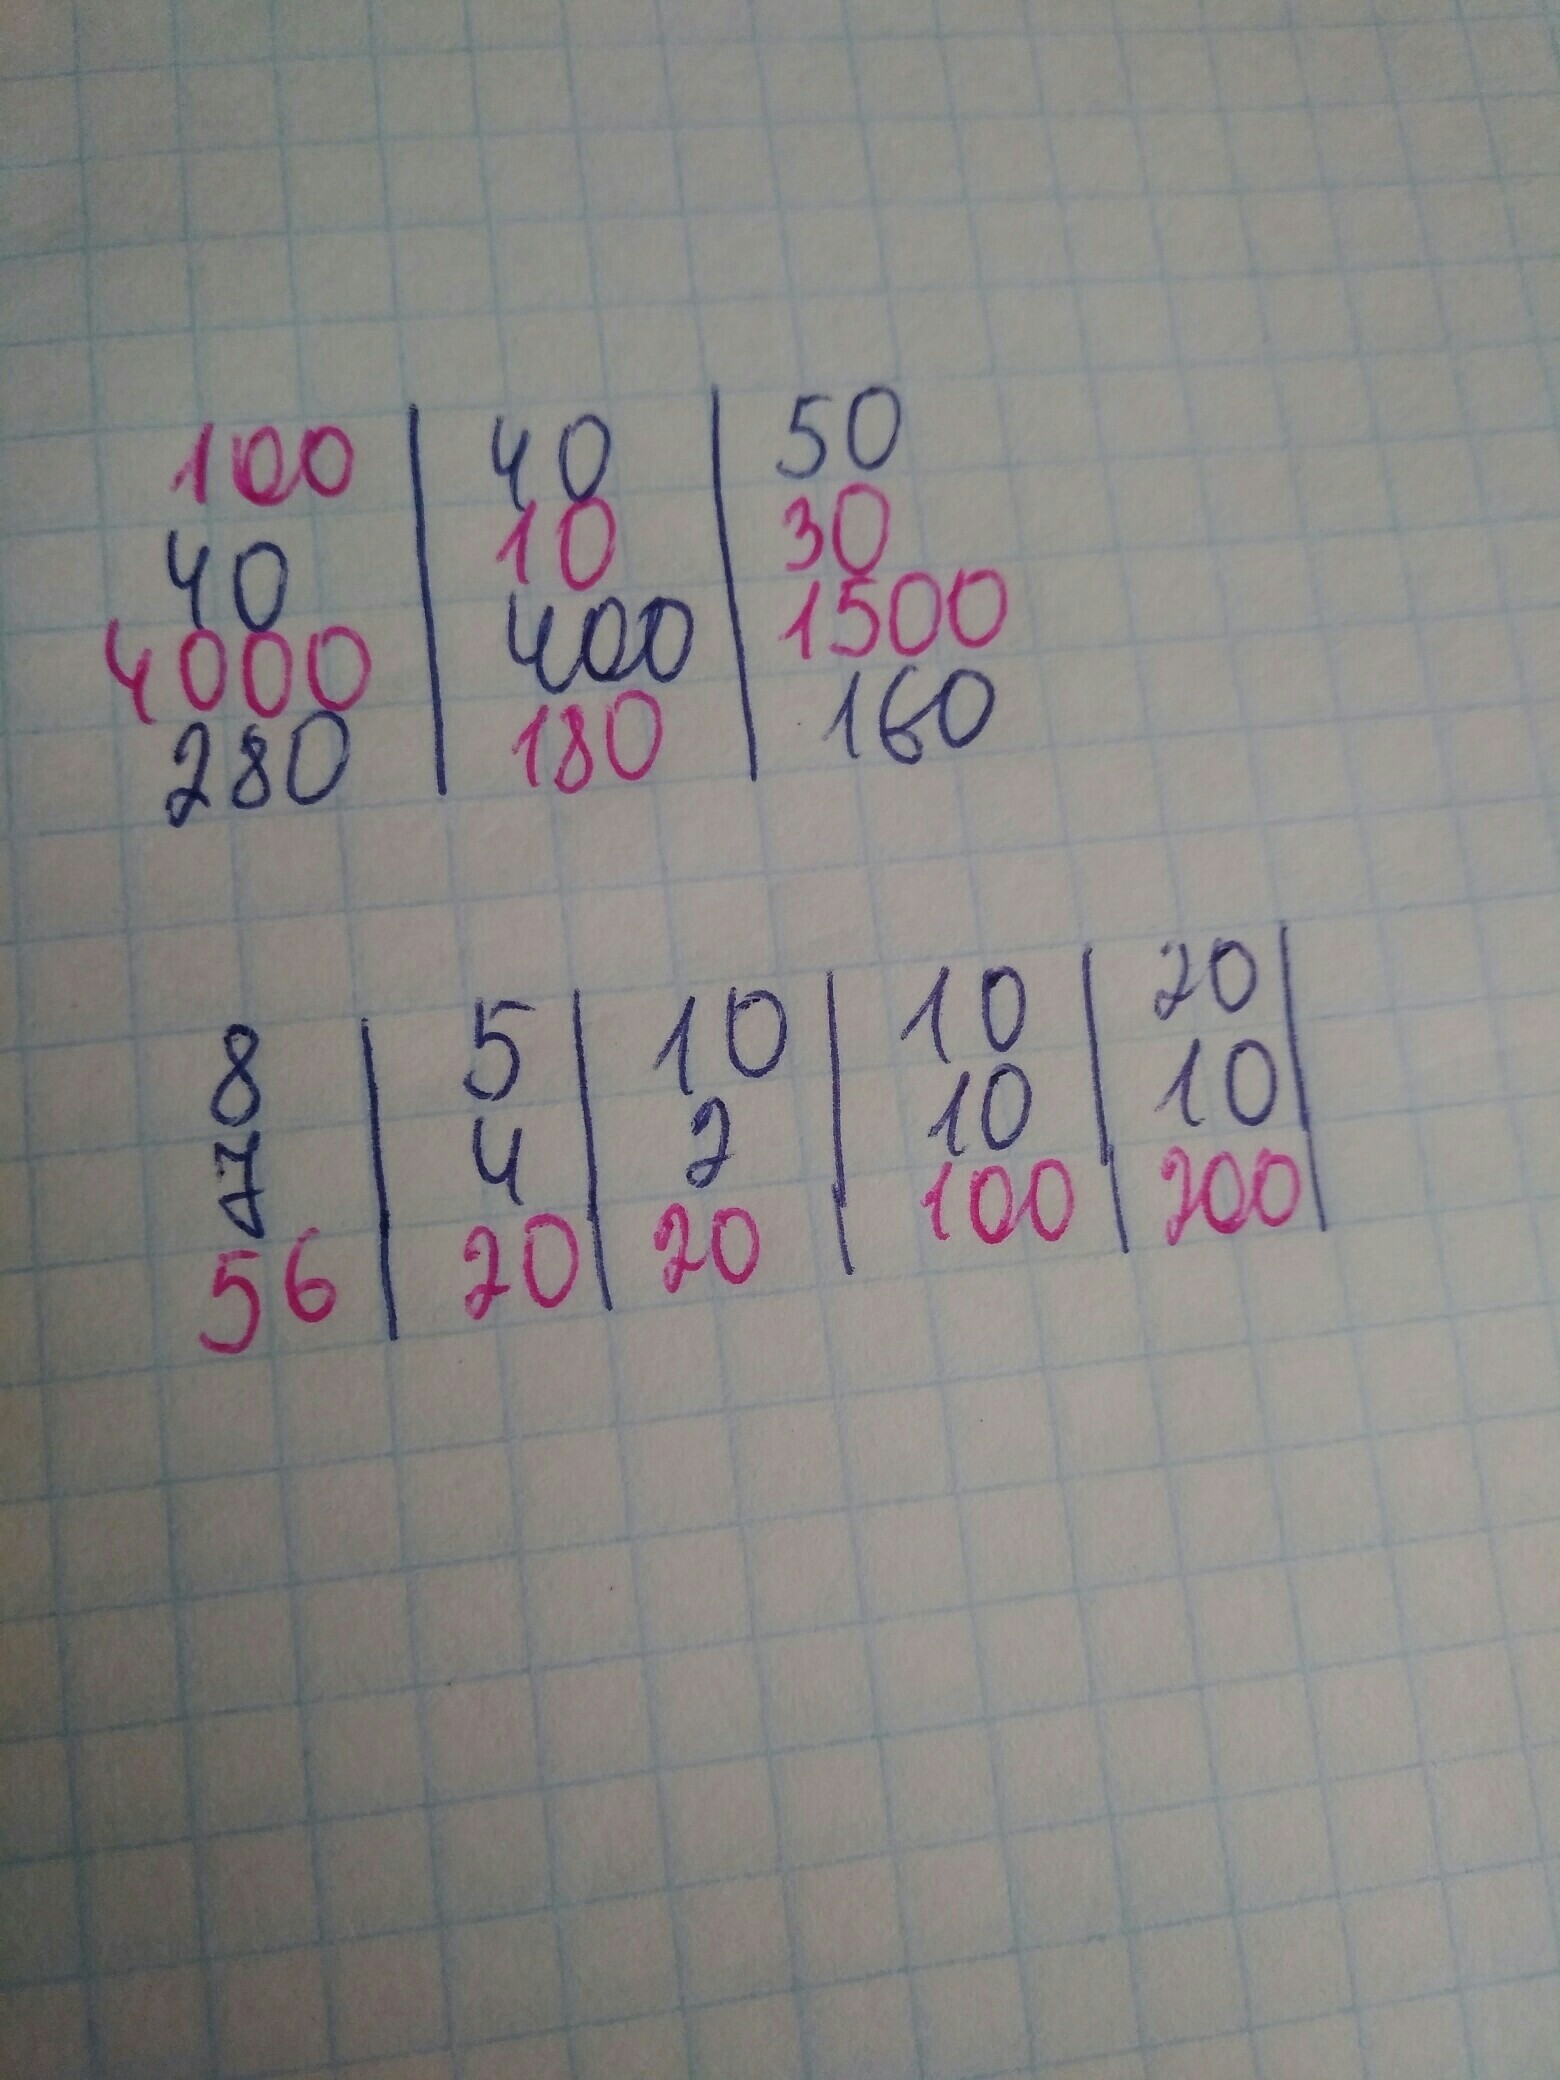 100 | 40 | 50
40 | 10 | 30
4000 | 400 | 1500
280 | 180 | 160
8 | 5 | 10 | 10 | 20 |
7 | 4 | 2 | 10 | 10 |
56 | 20 | 20 | 100 | 200 |